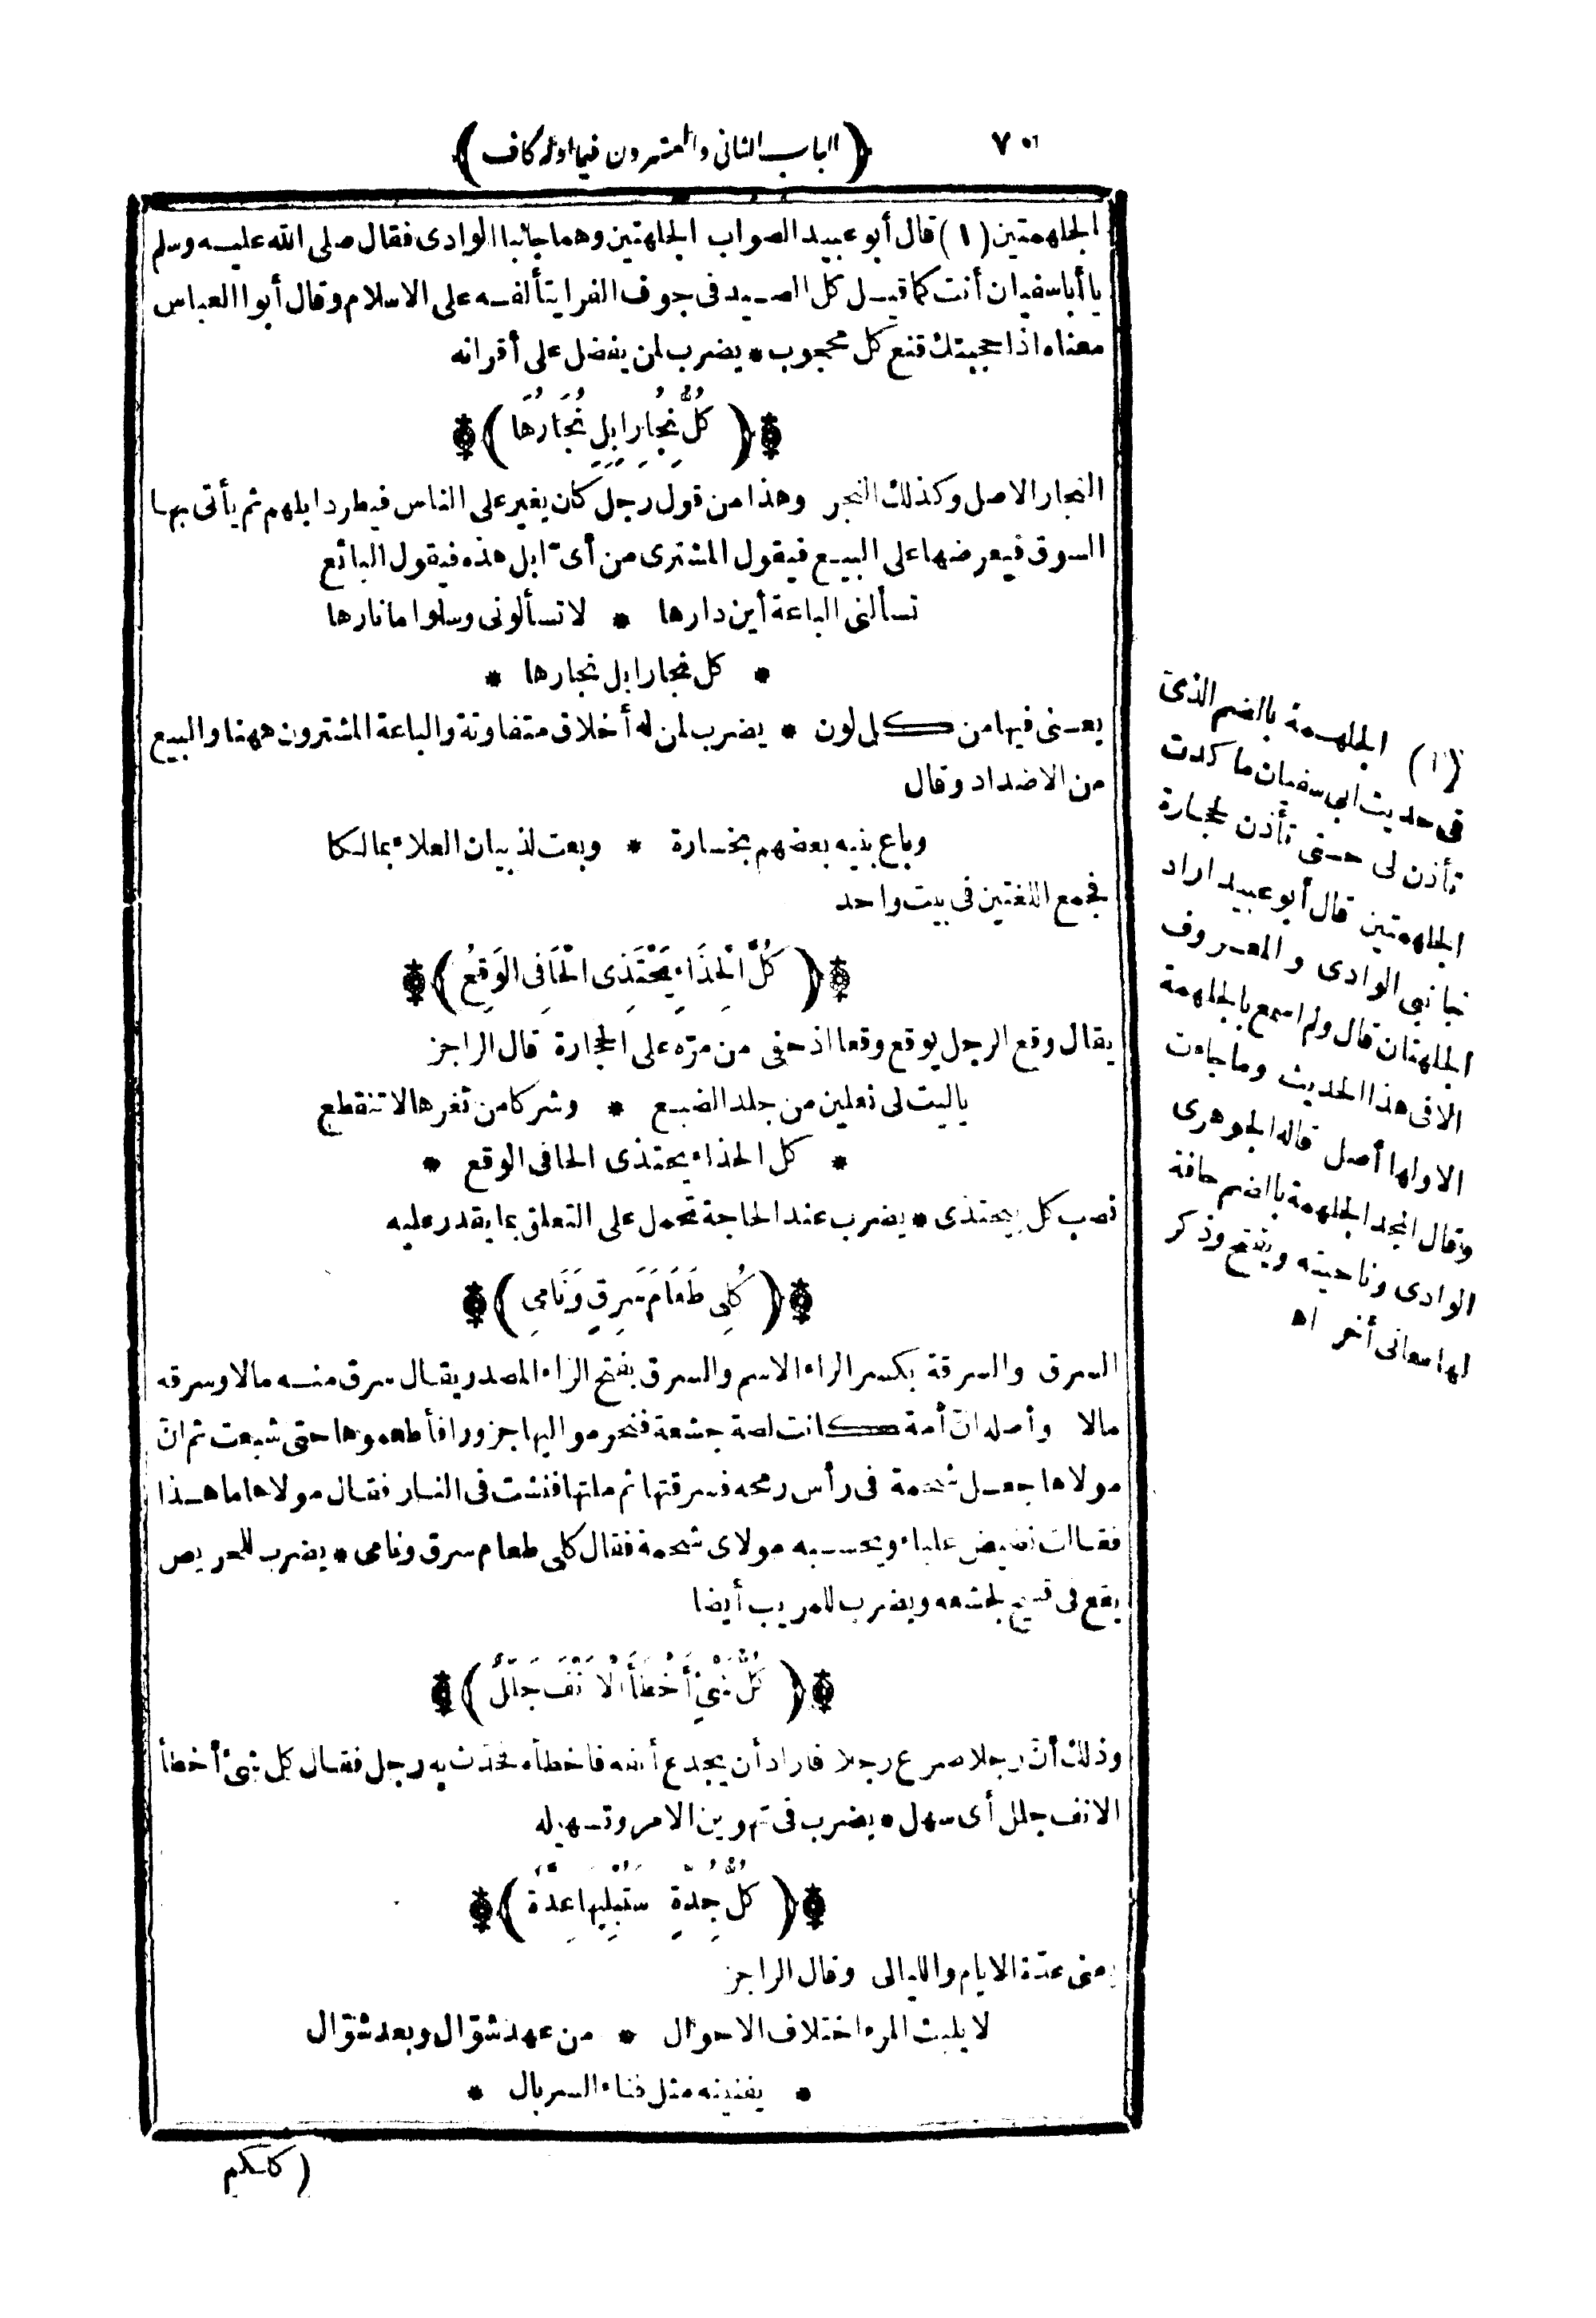 (الباب الثاني والعشرون فيما اوله كاف)
الجلهمتين (١) قال أبو عبيد الصواب الجلهتين وهما جانبا الوادى فقال صلى الله عليه وسلم
يا أبا سفيان أنت كما قيل كل الصيد فى جوف الفرا يتألفه على الاسلام وقال أبو العباس
معناه اذا حجبتك قنع كل محجوب * يضرب لمن يفضل على أقرانه
(كُلُّ نِجَارِ اِبِلٍ نُجَارُهَا)
النجار الاصل وكذلك النجر وهذا من قول رجل كان يغير على الناس فيطرد ابلهم ثم يأتى بها
السوق فيعرضها على البيع فيقول المشترى من أىّ ابل هذه فيقول البائع
تسألنى الباعة أين دارها * لا تسألونى وسلوا ما نارها
* كل نجار ابل نجارها *
يعنى فيها من كل لون * يضرب لمن له أخلاق متفاوتة والباعة المشترون ههنا والبيع
من الاضداد وقال
وباع بنيه بعضهم بخسارة * وبعت لذبيان العلاء بمالكا
فجمع اللغتين فى بيت واحد
(كُلَّ الْحِذَاءِ يَحْتَذِى الْحَافِى الوَقِعُ)
يقال وقع الرجل يوقع وقعا اذ حفى من مرّه على الحجارة قال الراجز
ياليت لى نعلين من جلد الضبع * وشركا من ثغرها لا تنقطع
* كل الحذاء يحتذى الحافى الوقع *
نصب كل بيحتذى * يضرب عند الحاجة تحمل على التعلق بما يقدر عليه
(كُلِى طَعَامَ سَرِقٍ وَنَامِى)
السرق والسرقة بكسر الراء الاسم والسرق بفتح الراء المصدر يقال سرق منه مالا وسرقه
مالا وأصله انّ أمة كانت لصة جشعة فنحر مواليها جزورا فأطعموها حتى شبعت ثم انّ
مولاها جعل شحمة فى رأس رمحه فسرقتها ثم ملتها فنشت فى النار فقال مولاها ما هذا
فقالت نضيض علباء ويحسبه مولاى شحمة فقال كلى طعام سرق ونامى * يضرب للحريص
يقع فى قبيح لجشعه ويضرب للمريب أيضا
(كُلُّ شَىْءٍ أَخْطَأَ الْاَنْفَ جَلَلٌ)
وذلك أنّ رجلا صرع رجلا فاراد أن يجدع أنفه فاخطأه فحدّث به رجل فقال كل شىء أخطأ
الانف جلل أى سهل * يضرب فى تهوين الامر وتسهيله
(كُلُّ جِدّةٍ سَتُبْلِيهَا عِدَّةٌ)
يعنى عدّة الايام والليالى وقال الراجز
لا يلبث المرء اختلاف الاحوال * من عهد شوّال وبعد شوّال
* يفنينه مثل فناء السربال *
(كلكم
(١) الجلهمة بالضم الذى
فى حديث ابى سفيان ما كدت
تأذن لى حتى تأذن لحجارة
الجلهمتين قال أبو عبيد اراد
جانبي الوادى والمعروف
الجلهتان قال ولم اسمع بالجلهمة
الا فى هذا الحديث وما جاءت
الا ولها أصل قاله الجوهرى
وقال المجد الجلهمة بالضم حافة
الوادى وناحيته ويفتح وذكر
لها معانى أخر اه